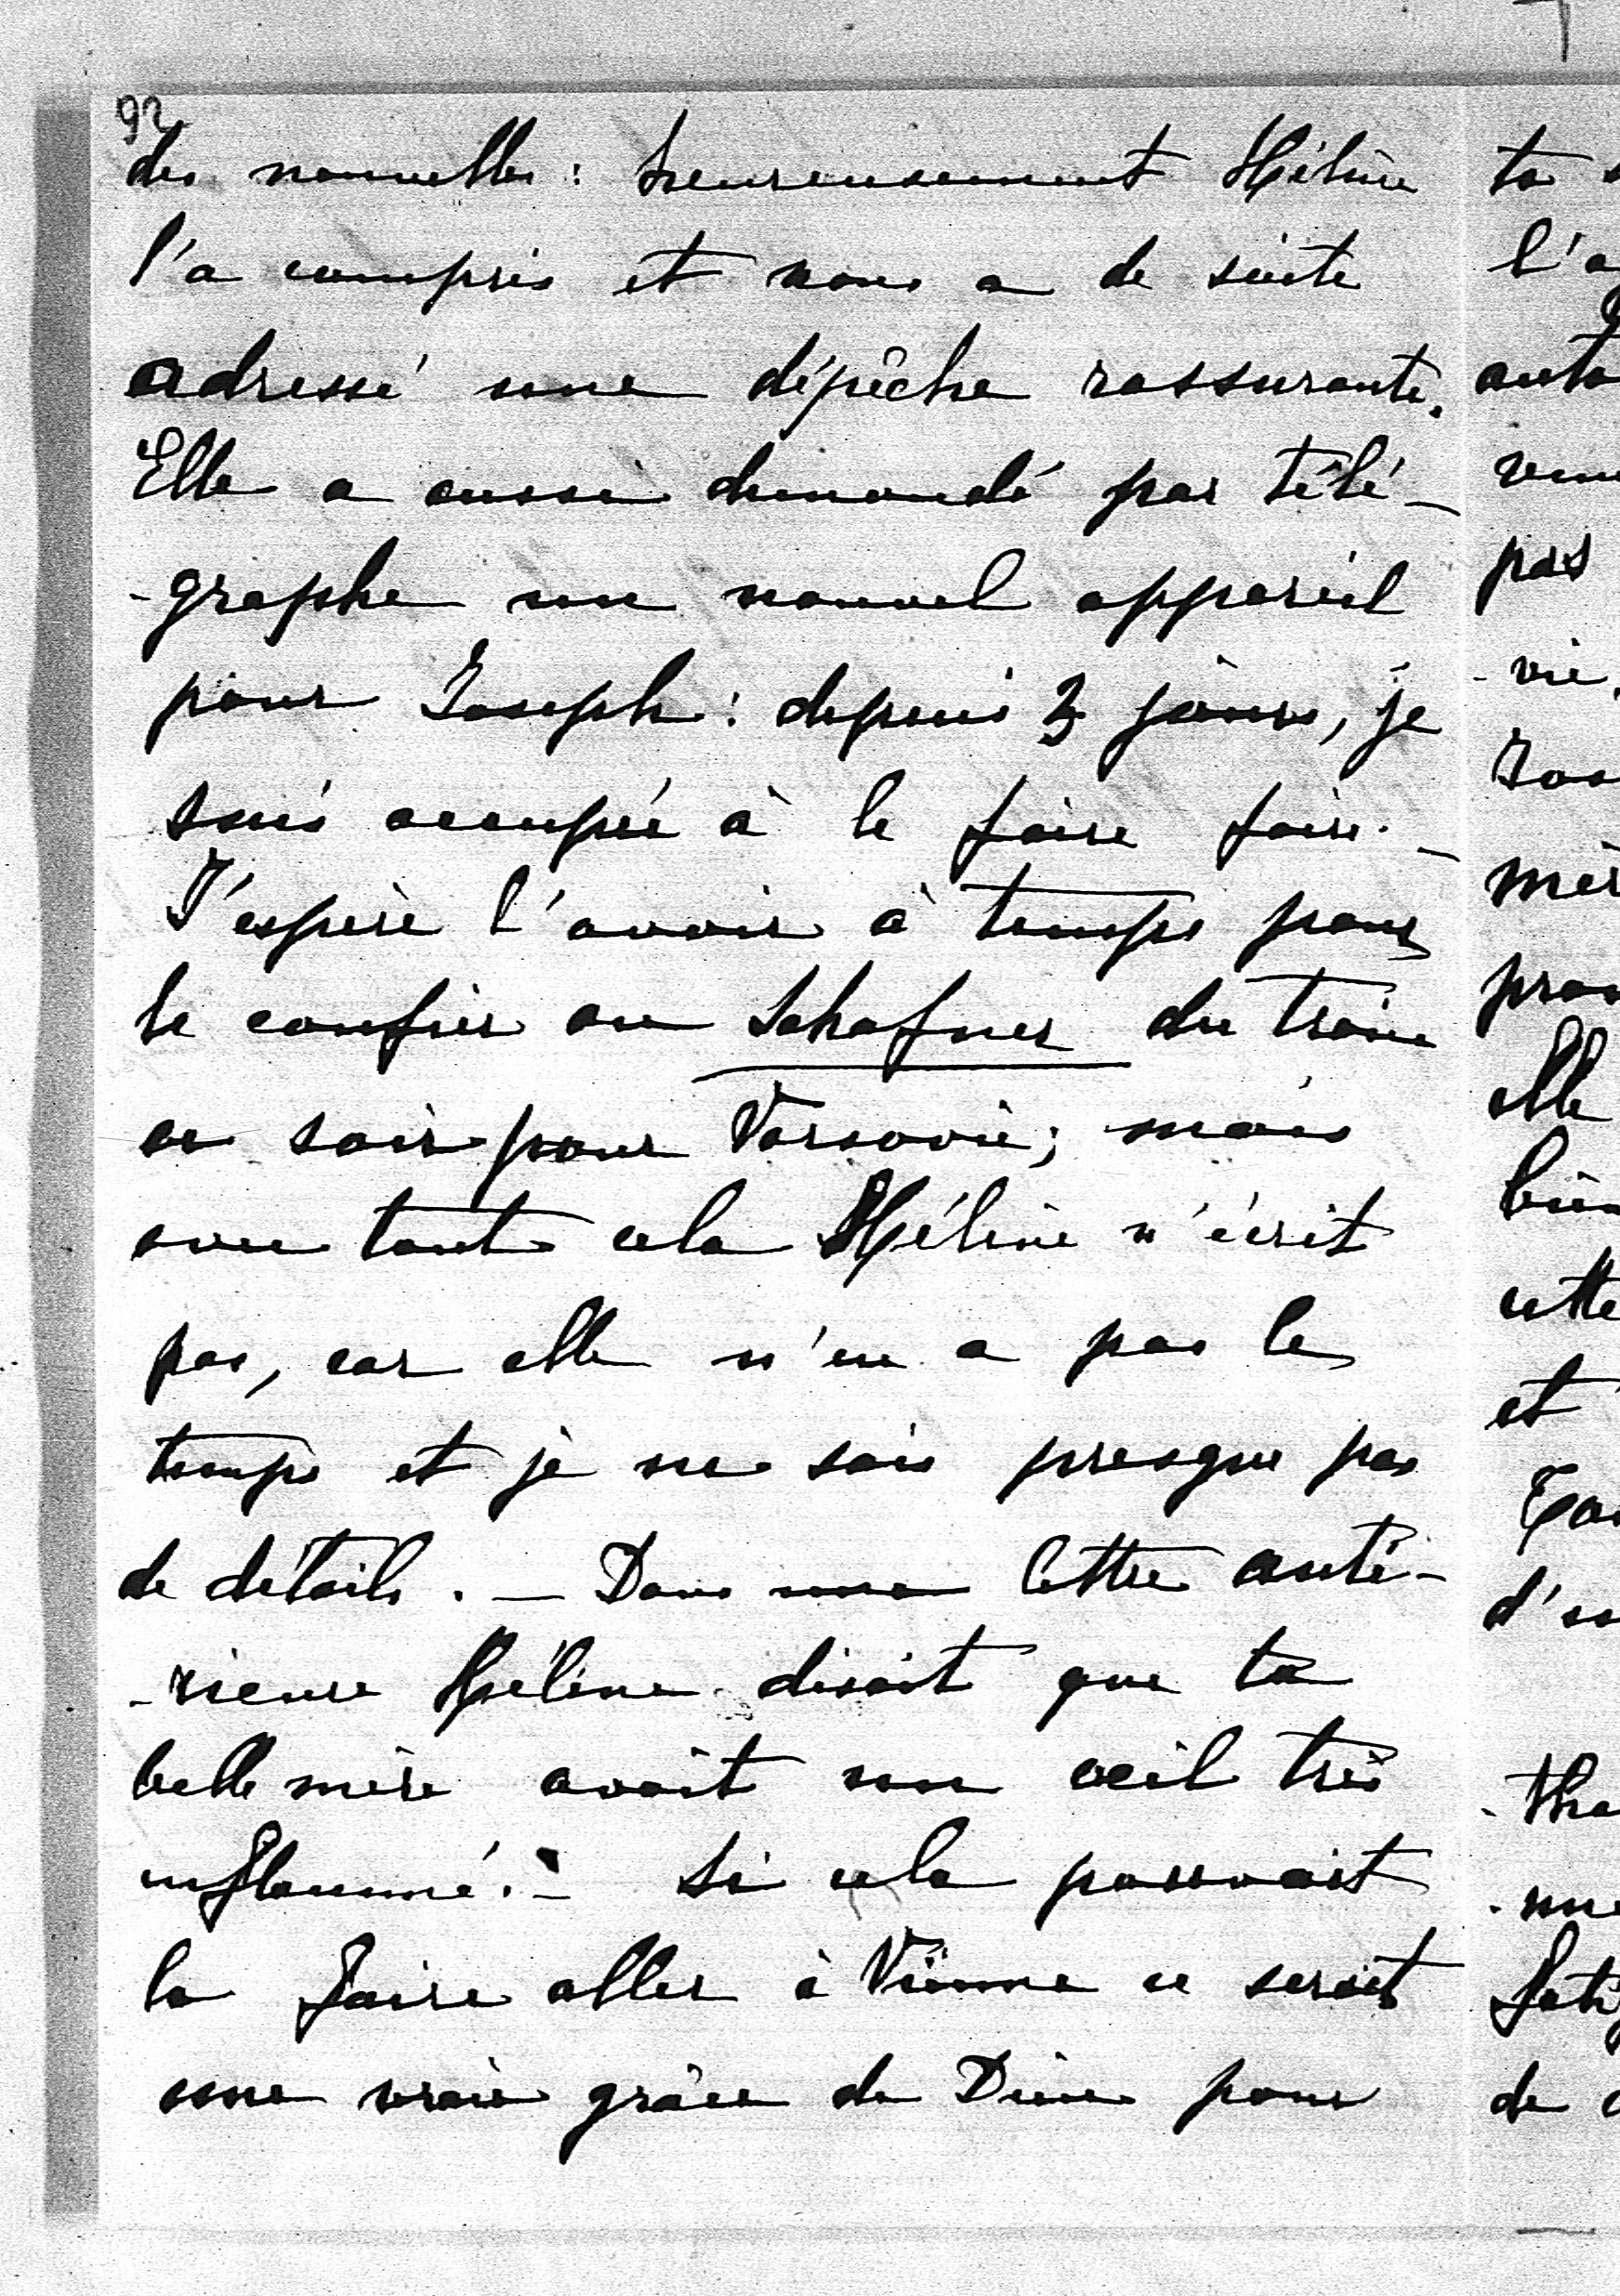 92
des nouvelles : heureusement Hélène
l'a compris et nous a de suite
adressé une dépêche rassurante.
Elle a aussi demandé par télé-
-graphe un nouvel appareil
pour Joseph : depuis 3 jours, je
suis occupée à le faire faire. _
J'espère l'avoir à temps pour
le confier au Schafner du train
ce soir pour Varsovie ; mais
avec tout cela Hélène n'écrit
pas, car elle n'en a pas le
temps et je ne sais presque pas
de détails. _ Dans une lettre anté-
-rieure Hélène disait que ta
belle mère avait un oeil très
enflammé. - Si cela pouvait
la faire aller à Vienne ce serait
une vraie grâce de Dieu pour
ta
l'a
auta
venu
pas
-vie,
mèr
elle
bien
cette
et
d'un
-tha
-me
fati
de